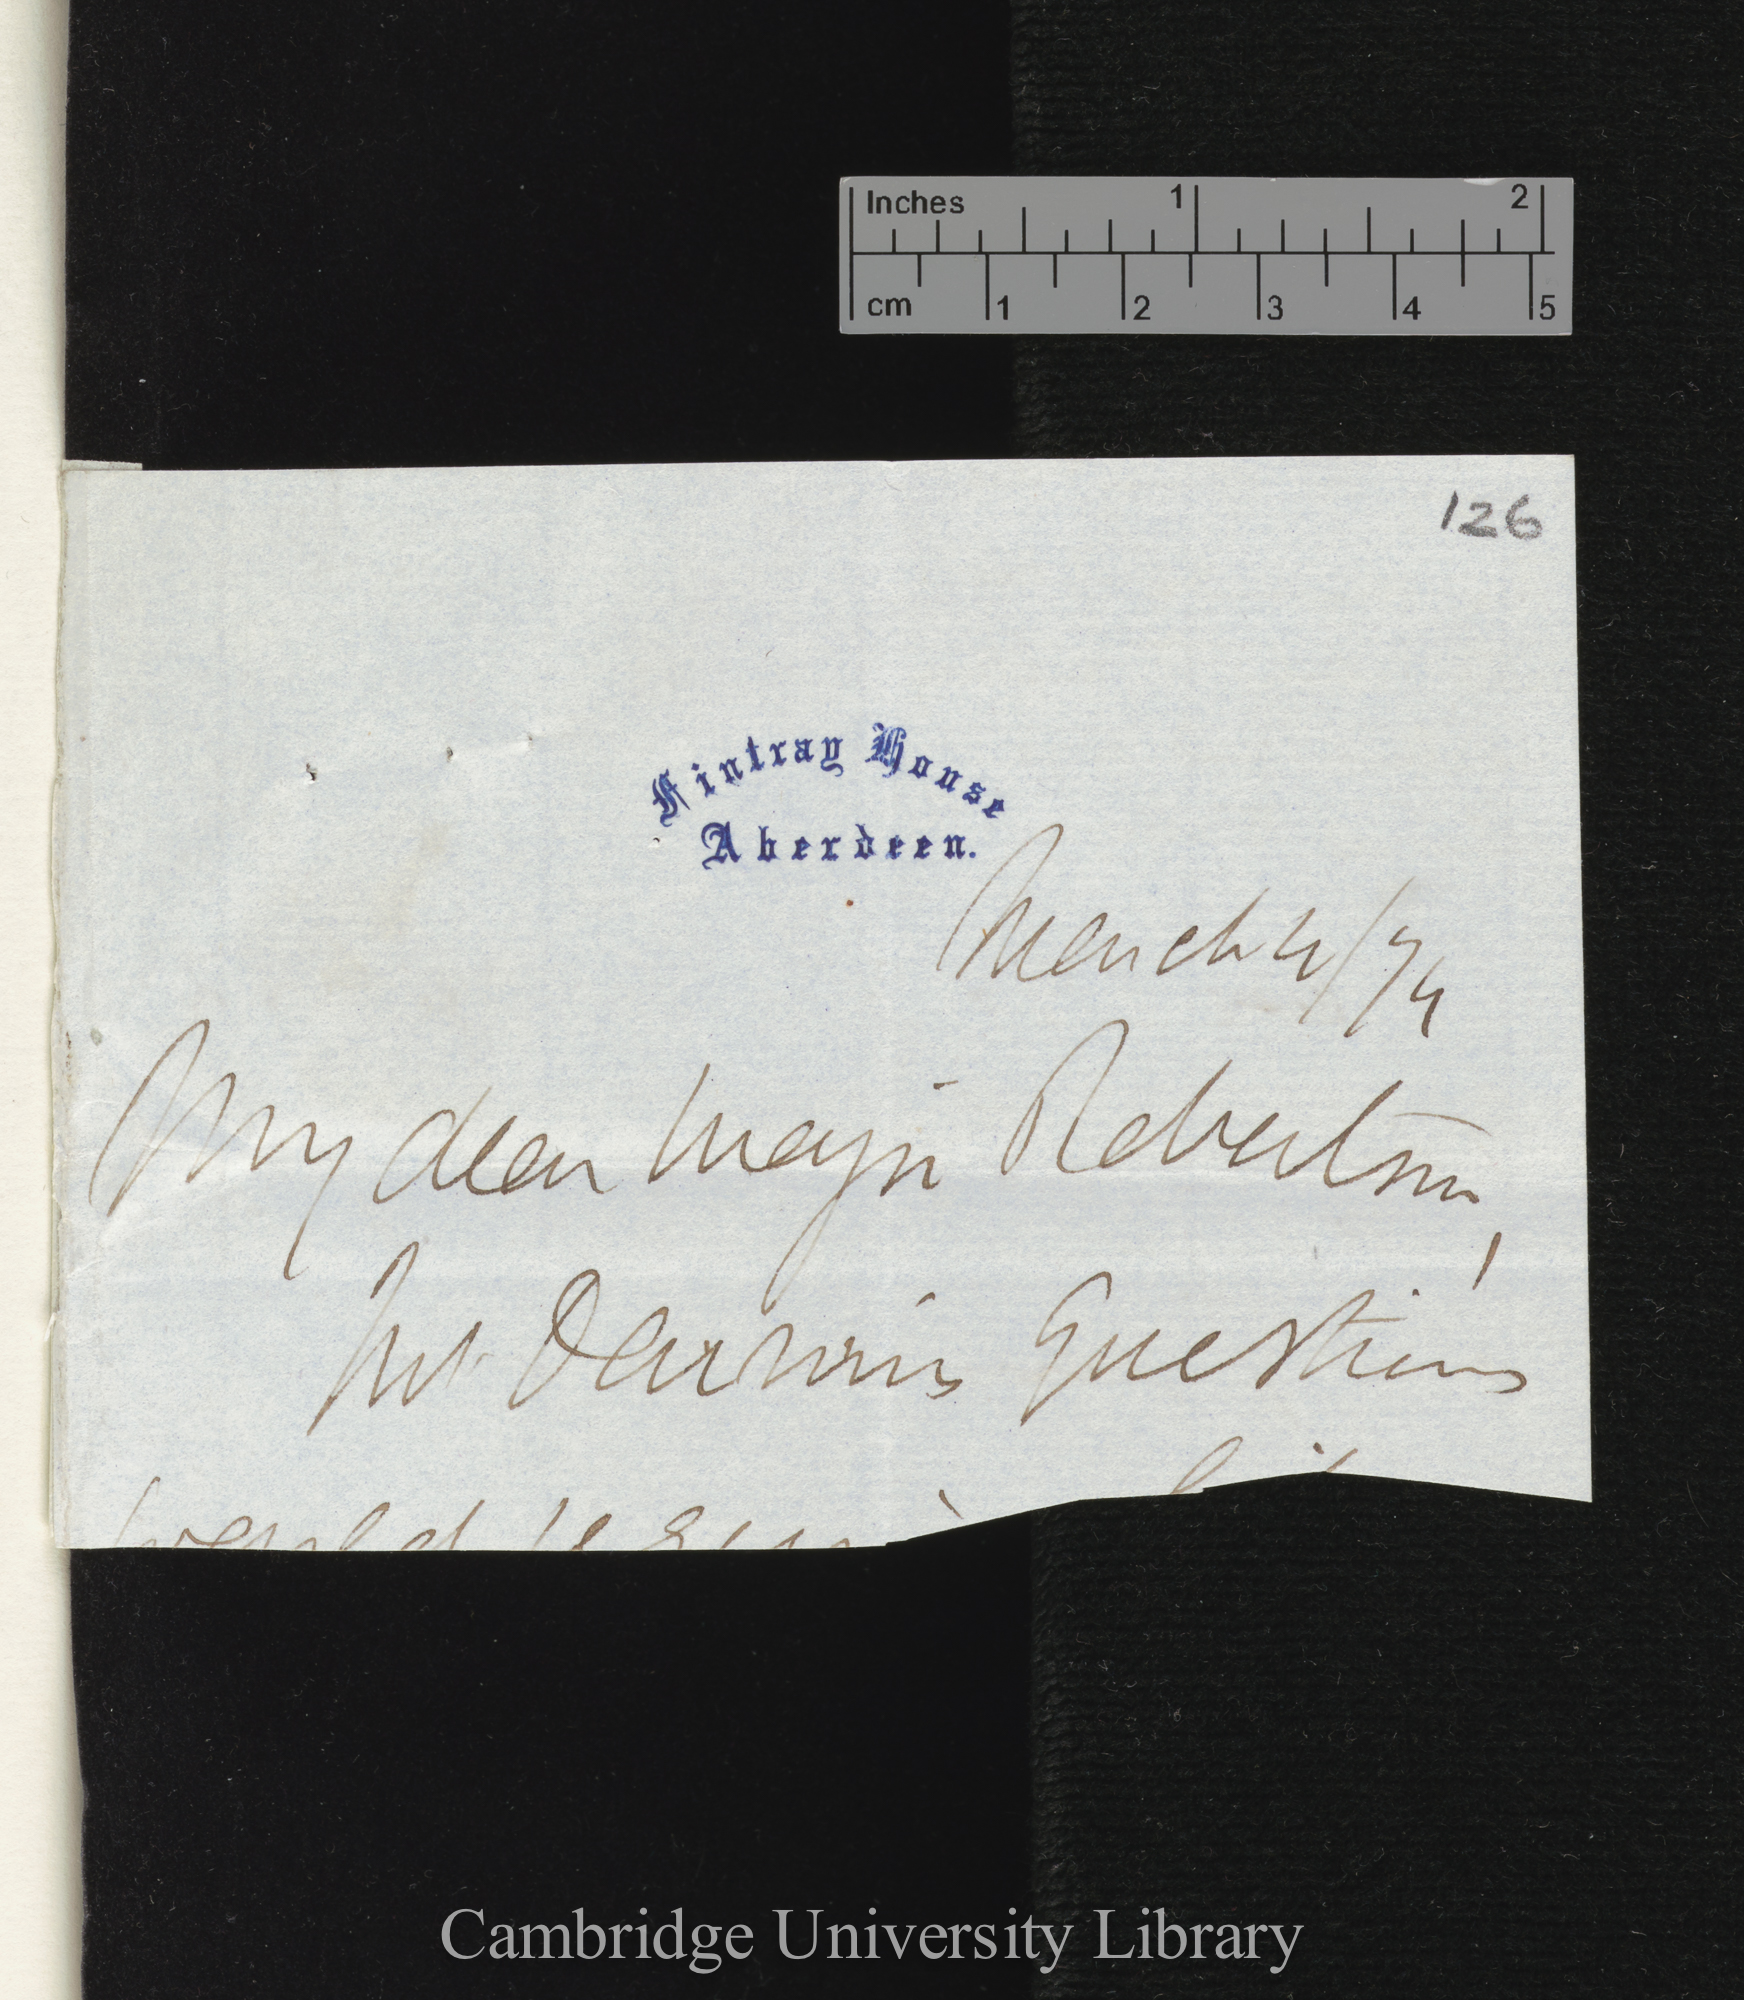 Inches 1 2
cm 1 2 3 4 5
126
Fintray House
Aberdeen.
March 4/74
My dear Major Robertson,
Mr Darwin's Questions
would
Cambridge University Library